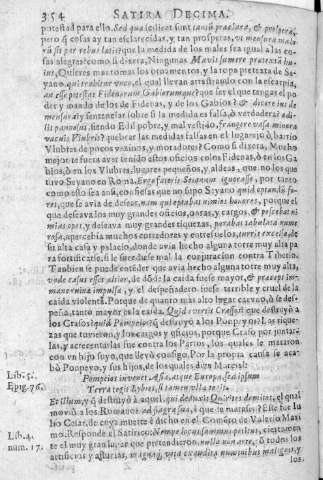 354 SATIRA DECIMA.
potestad para ello. Sed quæ scilicet sunt tanti præclara, & prospera,
pero q̃ cosas ay tan esclarecidas, y tan prosperas, ut mensura malo-
rũ sit par rebus lætis? que la medida de los males sea igual a las co-
sas alegres? como si dixera, Ningunas. Mavis sumere prætextã hu-
ius, Quieres mas tomar los ornamentos, y la ropa pretexta de Seya-
no, qui trahitur unco, el qual llevan arrastrando con la escarpia,
an esse potestas Fidenarum Gabiorumque? que ser el que tengas el po-
der y mando de los de Fidenas, y de los Gabios? & dicere ius de
mensura? y sentenciar sobre si la medida es falsa, ò verdadera? ædi-
lis pannosus, siendo Edil pobre, y mal vestido, frangere vasa minora
vacuis Ulubris? quebrar las medidas falsas en el lugar, ò barrio
Ulubres de pocos vezinos, y moradores? Como si dixera, Mucho
mejor te fuera aver tenido estos oficios con los Fidenas, ò en los Ga-
bios, ò en los Ulubres, lugares pequeños, y aldeas, que no los que
tuvo Seyano en Roma. Ergo fateris Seianum ignorasse, por tanto
como esto sea assi, confiessas que no supo Seyano quid optandũ fo-
ret, que se avia de desear, nam qui optabat nimios honores, porque el
que deseava los muy grandes oficios, honras, y cargos, & poscebat ni-
mias opes, y deseava muy grandes riquezas, parabat tabulata nume-
rosa, apercebia muchos corredores, y entresuelos, turris excelsæ, de
su alta casa y palacio, donde avia hecho alguna torre muy alta pa-
ra fortificarse, si le sucediesse mal la conjuracion contra Tiberio.
Tambien se puede entender que avia hecho alguna torre muy alta,
unde casus esset altior, de dõde la caida fuesse mayor, & præceps im-
mane ruinæ impulsæ, y el despeñadero fuesse terrible y cruel de la
caida violenta. Porque de quanto mas alto lugar cae uno, ò se des-
peña, tanto mayor es la caida. Quid evertit Crassos? que destruyò a
los Crasos? quid Pompeios? q̃ destruyò a los Pompeyos? las rique-
zas que tuvieron, y los cargos y oficios, porque Craso por juntar-
las, y acrecentarlas fue contra los Partos, los quales le mataron
con un hijo suyo, que llevò consigo. Por la propia causa se acabò
Pompeyo, y sus hijos, de los quales dixo Marcial:
Lib. 5. Pompeios iuvenes Asia, atque Europa, sed ipsum
Epig. 76. Terra tegit Lybies, si tamen ulla tegit.
Et illum, y q̃ destruyò a aquel, qui deduxit Quirites domitos, el qual
moviò a los Romanos ad flagra sua, à que le matassen? Este fue Iu-
lio Cesar, de cuya muerte è dicho en el Comento de Valerio Maxi-
Lib. 4. mo. Responde el Satirico: Nempe locus summus petitus, ciertamente
num. 17. te el muy gran lugar que pretendieron, nulla non arte, ò todos los
artificios y astucias, magnaq́; vota exaudita numinibus malignis, y
los